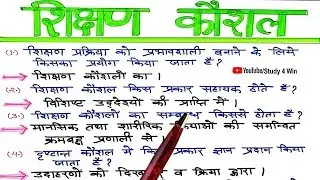 शिक्षण कौशल
(1)- शिक्षण प्रक्रिया को प्रभावशाली बनाने के लिये
किसका प्रयोग किया जाता है?
YouTube/Study 4 Win
शिक्षण कौशलों का।
(2)- शिक्षण कौशल किस प्रकार सहायक होते हैं?
विशिष्ट उद्देश्यों की प्राप्ति में।
(3)- शिक्षण कौशलों का सम्बन्ध किससे होता है?
मानसिक तथा शारीरिक क्रियाओं की समन्वित
क्रमबद्ध प्रणाली से।
(4)- दृष्टान्त कौशल में किस प्रकार ज्ञान प्रदान किया
जाता है?
उदाहरणों को व क्रिया द्वारा।